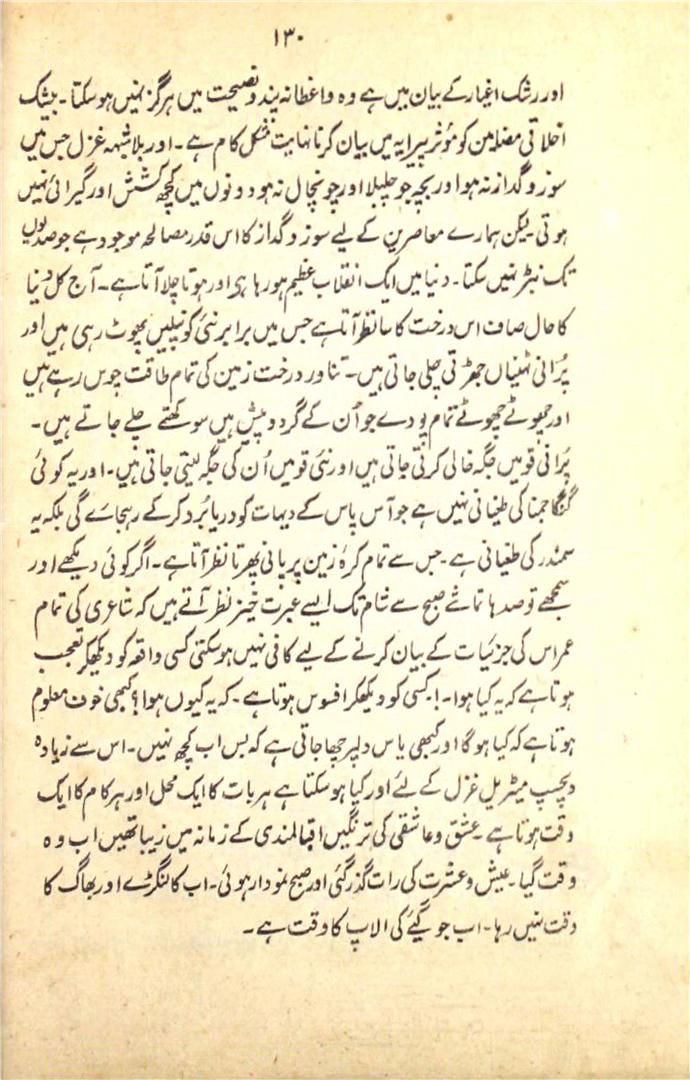 ۱۳۰
اور رشک اغیار کے بیان میں ہے وہ واعظانہ پند و نصیحت میں ہرگز نہیں ہو سکتا ۔ بیشک
اخلاقی مضامین کو مؤثر پیرایہ میں بیان کرنا نہایت مشکل کام ہے ۔ اور بلا شبہہ غزل جس میں
سوز و گداز نہ ہو اور بچہ جو چلبلا اور چونچال نہ ہو دونوں میں کچھ کشش اور گیرائی نہیں
ہوتی ۔ لیکن ہمارے معاصرین کے لیے سوز و گداز کا اس قدر مصالحہ موجود ہے جو صدیوں
تک نبڑ نہیں سکتا ۔ دنیا میں ایک انقلاب عظیم ہو رہا ہی اور ہوتا چلا آتا ہے ۔ آج کل دنیا
کا حال صاف اس درخت کا سا نظر آتا ہے جس میں برابر نئی کونپلیں پھوٹ رہی ہیں اور
پُرانی ٹہنیاں جھڑتی چلی جاتی ہیں ۔ تناور درخت زمین کی تمام طاقت چوس رہے ہیں
اور چھوٹے چھوٹے تمام پودے جو اُن کے گرد و پیش ہیں سوکھتے چلے جاتے ہیں ۔
پُرانی قومیں جگہ خالی کرتی جاتی ہیں اور نئی قومیں اُن کی جگہ لیتی جاتی ہیں ۔ اور یہ کوئی
گنگا جمنا کی طغیانی نہیں ہے جو آس پاس کے دیہات کو دریا بُرد کر کے رہجاے گی بلکہ یہ
سمندر کی طغیانی ہے ۔ جس سے تمام کرۂ زمین پر پانی پھرتا نظر آتا ہے ۔ اگر کوئی دیکھے اور
سمجھے تو صدہا تماشے صبح سے شام تک ایسے عبرت خیز نظر آتے ہیں کہ شاعری کی تمام
عمر اس کی جزئیات کے بیان کرنے کے لیے کافی نہیں ہو سکتی کسی واقعہ کو دیکھکر تعجب
ہوتا ہے کہ یہ کیا ہوا ۔ ! کسی کو دیکھکر افسوس ہوتا ہے ۔ کہ یہ کیوں ہوا ؟ کبھی خوف معلوم
ہوتا ہے کہ کیا ہوگا اور کبھی یاس دلپر چھا جاتی ہے کہ بس اب کچھ نہیں ۔ اس سے زیادہ
دلچسپ میٹریل غزل کے لئے اور کیا ہو سکتا ہے ہر بات کا ایک محل اور ہر کام کا ایک
وقت ہوتا ہے ۔ عشق و عاشقی کی ترنگیں اقبالمندی کے زمانہ میں زیبا تھیں اب وہ
وقت گیا ۔ عیش و عشرت کی رات گذر گئی اور صبح نمودار ہوئی ۔ اب کالنگڑے اور بھاگ کا
وقت نہیں رہا ۔ اب جوگیئے کی الاپ کا وقت ہے ۔